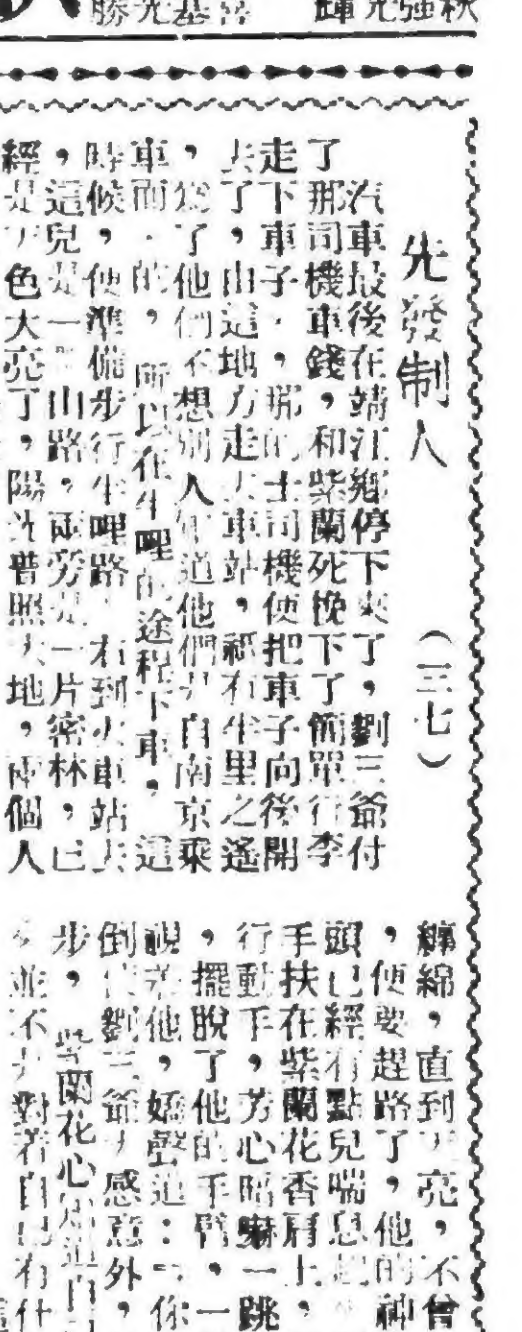 勝光基
輝光強秋
先發制人
(三七)
汽車最後在靖江鄉停下來了,劉三爺付
了那司機車錢,和紫蘭死挽下了簡單行李
走下車子,那的士司機便把車子向後開
去了,由這地方走去車站,祇有半里之遙
,為了他們不想別人知道他們是自南京乘
車而的,所以在半哩的途程下車,這
時候,便準備步行半哩路,右到火車站去
,這兒是一山路,兩旁是一片密林,已
經是天色大亮了,陽光普照大地,兩個人
纏綿,直到天亮,不曾
,便要趕路了,他的神
頭已經有點兒喘息起
手扶在紫蘭花香肩上,
行動手,芳心暗嚇一跳
,擺脫了他的手臂,一
視着他,嬌聲道:「你
倒使劉三爺大感意外,
步,紫蘭花心知道自
並不是對着自己有什